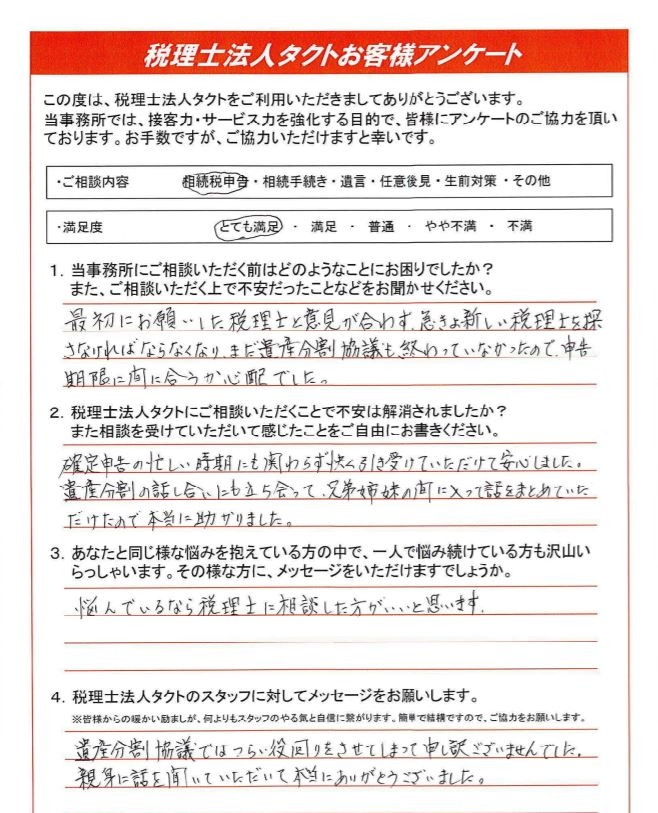 税理士法人タクトお客様アンケート
この度は、税理士法人タクトをご利用いただきましてありがとうございます。
当事務所では、接客力・サービス力を強化する目的で、皆様にアンケートのご協力を頂い
ております。お手数ですが、ご協力いただけますと幸いです。
・ご相談内容 相続税申告・相続手続き・遺言・任意後見・生前対策・その他
・満足度 とても満足 ・ 満足 ・ 普通 ・ やや不満 ・ 不満
1. 当事務所にご相談いただく前はどのようなことにお困りでしたか？
また、ご相談いただく上で不安だったことなどをお聞かせください。
最初にお願いした税理士と意見が合わず、急きょ新しい税理士を探
さなければならなくなり、まだ遺産分割協議も終わっていなかったので、申告
期限に間に合うか心配でした。
2. 税理士法人タクトにご相談いただくことで不安は解消されましたか？
また相談を受けていただいて感じたことをご自由にお書きください。
確定申告の忙しい時期にも関わらず快く引き受けていただけて安心しました。
遺産分割の話し合いにも立ち会って、兄弟姉妹の間に入って話をまとめていた
だけたので本当に助かりました。
3. あなたと同じ様な悩みを抱えている方の中で、一人で悩み続けている方も沢山い
らっしゃいます。その様な方に、メッセージをいただけますでしょうか。
悩んでいるなら税理士に相談した方がいいと思います。
4. 税理士法人タクトのスタッフに対してメッセージをお願いします。
※皆様からの暖かい励ましが、何よりもスタッフのやる気と自信に繋がります。簡単で結構ですので、ご協力をお願いします。
遺産分割協議ではつらい役回りをさせてしまって申し訳ございませんでした。
親身に話を聞いていただいて本当にありがとうございました。